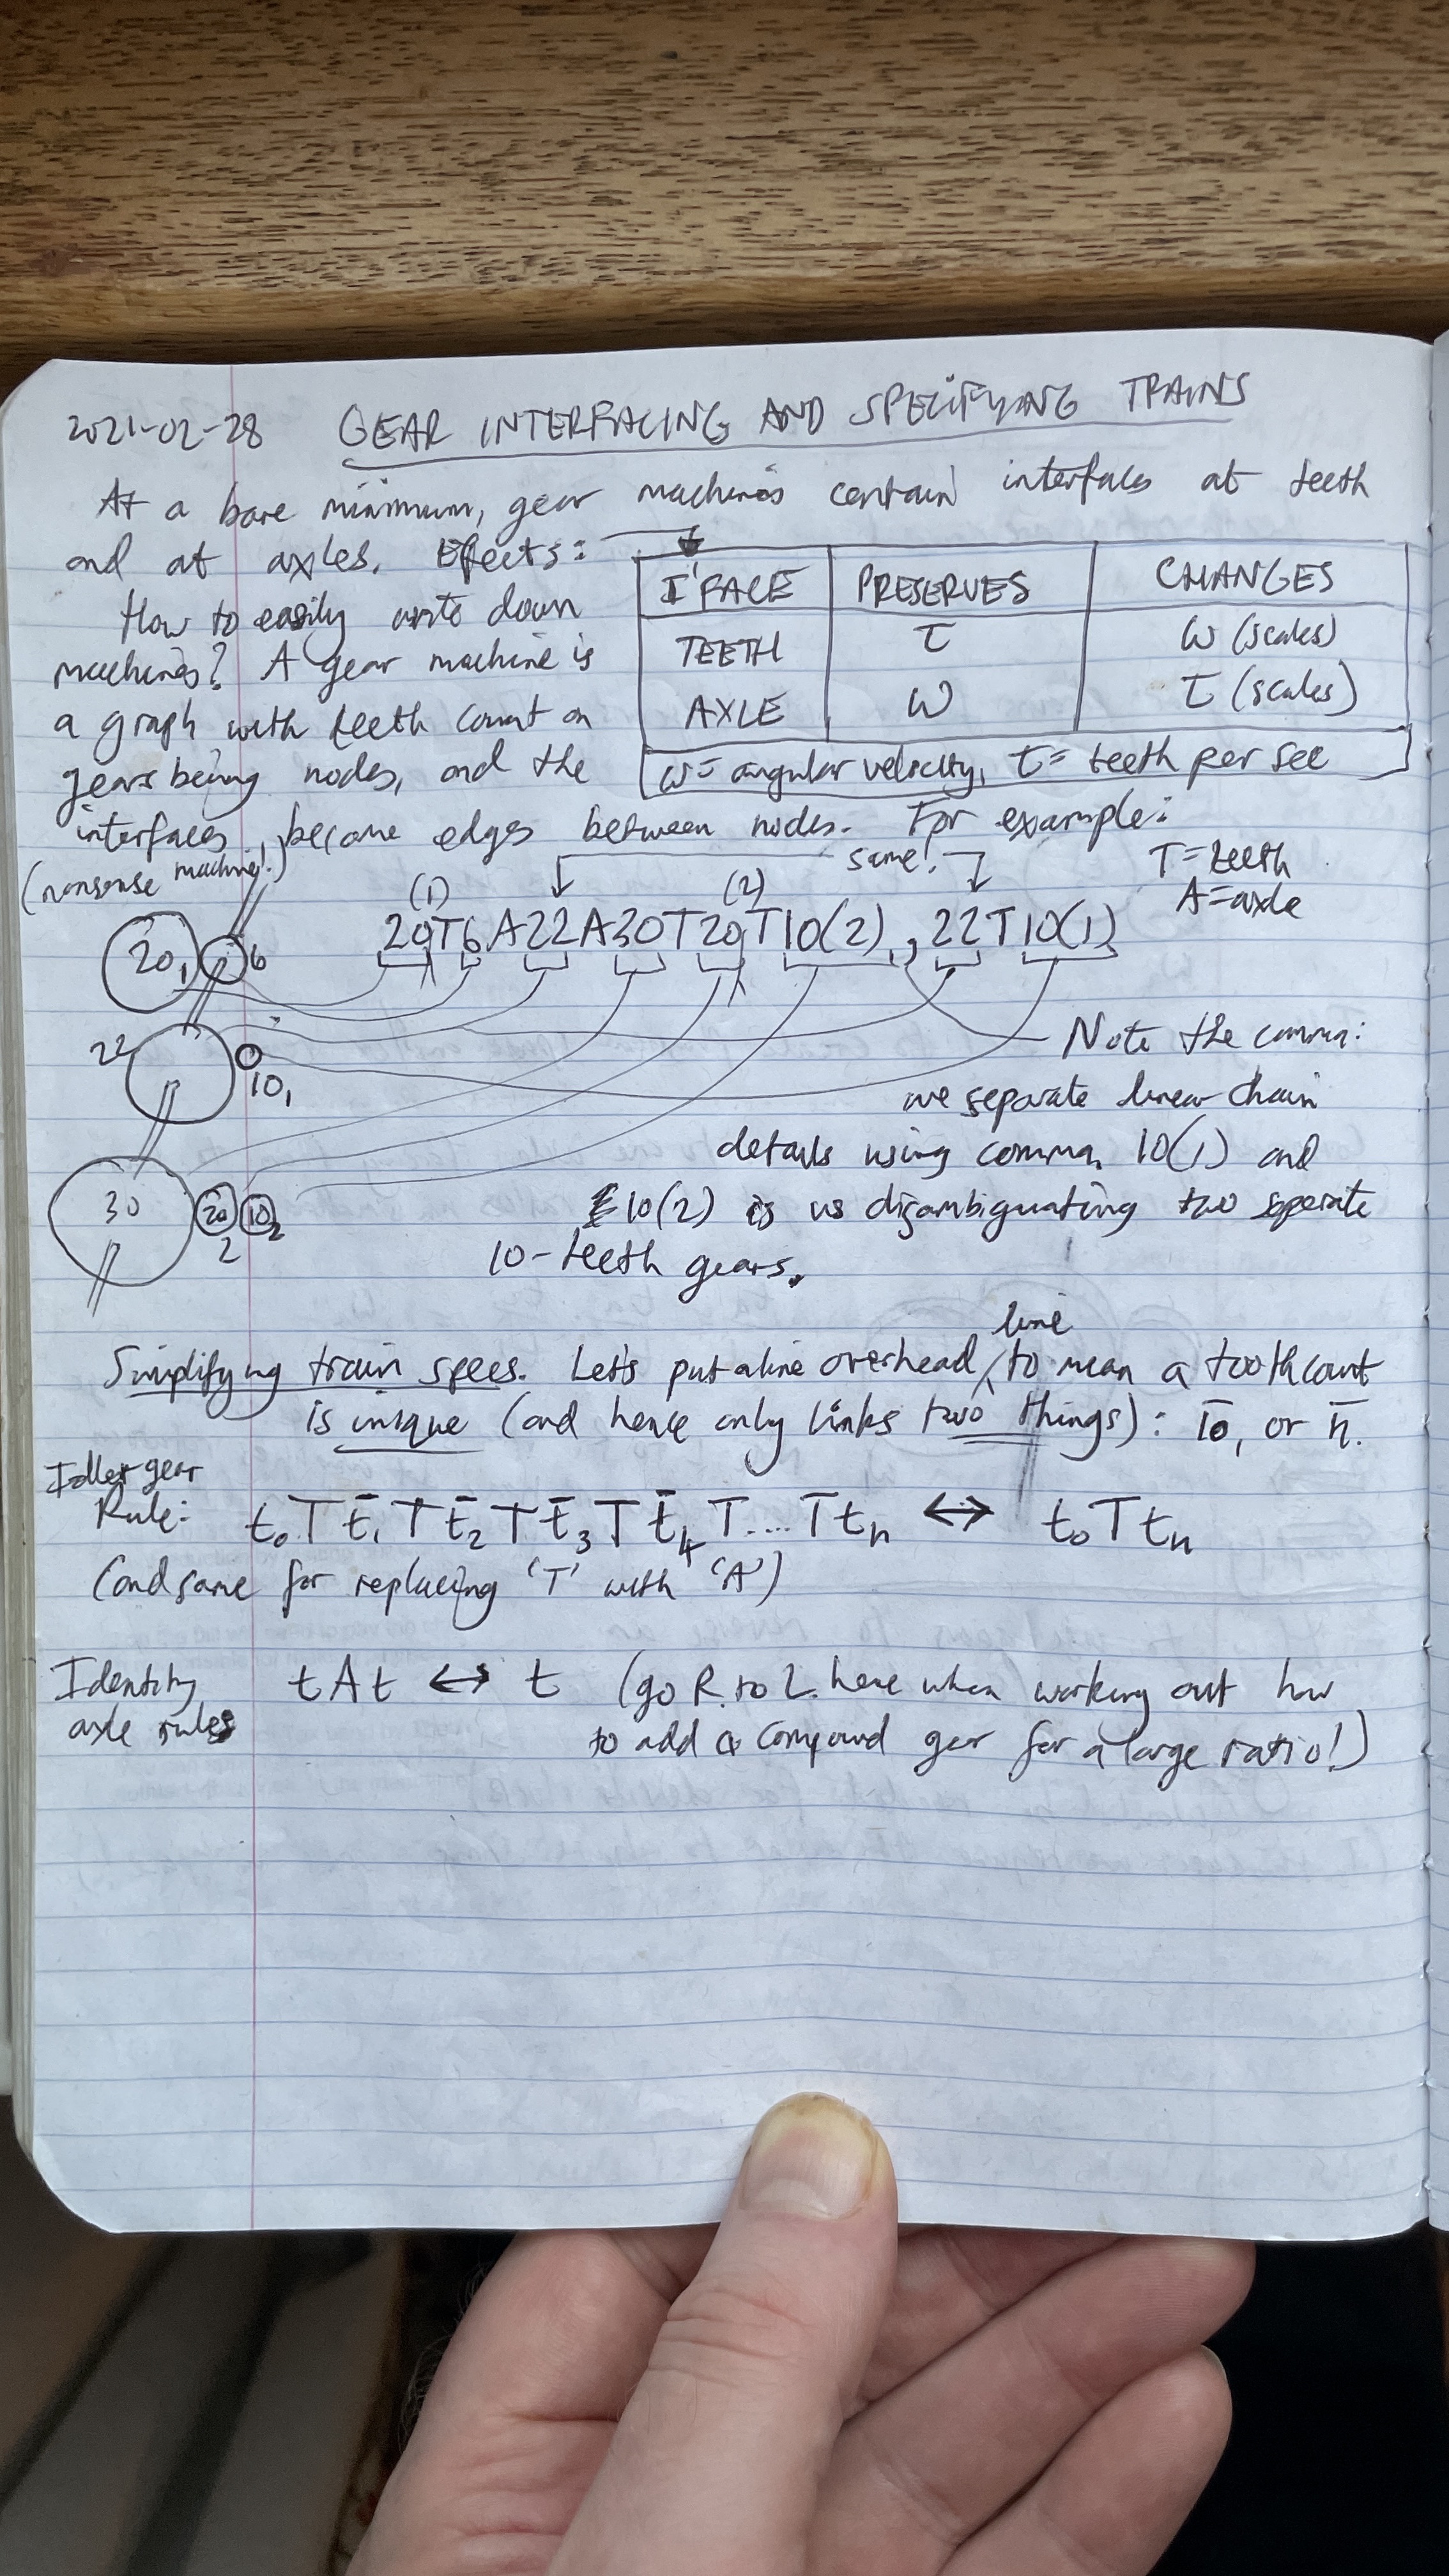 2021-02-28 GEAR INTERFACING AND SPECIFYING TRAINS
At a bare minimum, gear machines contain interfaces at teeth
and at axles. Effects:
I'FACE PRESERVES CHANGES
TEETH τ ω (scales)
AXLE ω τ (scales)
ω = angular velocity, τ = teeth per sec
How to easily write down
machines? A gear machine is
a graph with teeth count on
gears being nodes, and the
interfaces, become edges between nodes. For example:
(nonsense machine!)
same!
T = teeth
A = axle
(1) (2)
20T6A22A30T20T10(2), 22T10(1)
20₁ 6
22 10₁
30 20 2 10 2
Note the comma:
we separate linear chain
details using comma. 10(1) and
10(2) is us disambiguating two seperate
10-teeth gears.
Simplifying train specs. Let's put a line overhead line to mean a tooth count
is unique (and hence only links two things): 1̅0̅, or n̅.
Idler gear
Rule: t₀ T t̅₁ T t̅₂ T t̅₃ T t̅₄ T .... T tₙ ↔ t₀ T tₙ
(and same for replacing 'T' with 'A')
Identity axle rules tAt ↔ t (go R. to L. here when working out how
to add a compound gear for a large ratio!)